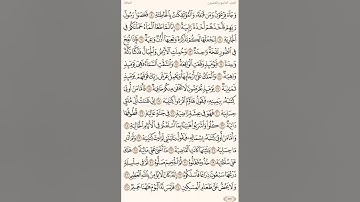 الجزء التاسع والعشرون الحاقة
وَجَآءَ فِرْعَوْنُ وَمَن قَبْلَهُۥ وَٱلْمُؤْتَفِكَٰتُ بِٱلْخَاطِئَةِ ۝٩ فَعَصَوْا۟ رَسُولَ
رَبِّهِمْ فَأَخَذَهُمْ أَخْذَةً رَّابِيَةً ۝١٠ إِنَّا لَمَّا طَغَا ٱلْمَآءُ حَمَلْنَٰكُمْ فِى
ٱلْجَارِيَةِ ۝١١ لِنَجْعَلَهَا لَكُمْ تَذْكِرَةً وَتَعِيَهَآ أُذُنٌ وَٰعِيَةٌ ۝١٢ فَإِذَا نُفِخَ
فِى ٱلصُّورِ نَفْخَةٌ وَٰحِدَةٌ ۝١٣ وَحُمِلَتِ ٱلْأَرْضُ وَٱلْجِبَالُ فَدُكَّتَا دَكَّةً
وَٰحِدَةً ۝١٤ فَيَوْمَئِذٍ وَقَعَتِ ٱلْوَاقِعَةُ ۝١٥ وَٱنشَقَّتِ ٱلسَّمَآءُ فَهِىَ يَوْمَئِذٍ
وَاهِيَةٌ ۝١٦ وَٱلْمَلَكُ عَلَىٰٓ أَرْجَآئِهَا وَيَحْمِلُ عَرْشَ رَبِّكَ فَوْقَهُمْ يَوْمَئِذٍ
ثَمَٰنِيَةٌ ۝١٧ يَوْمَئِذٍ تُعْرَضُونَ لَا تَخْفَىٰ مِنكُمْ خَافِيَةٌ ۝١٨ فَأَمَّا مَنْ أُوتِىَ
كِتَٰبَهُۥ بِيَمِينِهِۦ فَيَقُولُ هَآؤُمُ ٱقْرَءُوا۟ كِتَٰبِيَهْ ۝١٩ إِنِّى ظَنَنتُ أَنِّى مُلَٰقٍ
حِسَابِيَهْ ۝٢٠ فَهُوَ فِى عِيشَةٍ رَّاضِيَةٍ ۝٢١ فِى جَنَّةٍ عَالِيَةٍ ۝٢٢ قُطُوفُهَا
دَانِيَةٌ ۝٢٣ كُلُوا۟ وَٱشْرَبُوا۟ هَنِيٓـًٔۢا بِمَآ أَسْلَفْتُمْ فِى ٱلْأَيَّامِ ٱلْخَالِيَةِ ۝٢٤
وَأَمَّا مَنْ أُوتِىَ كِتَٰبَهُۥ بِشِمَالِهِۦ فَيَقُولُ يَٰلَيْتَنِى لَمْ أُوتَ كِتَٰبِيَهْ ۝٢٥ وَلَمْ أَدْرِ
مَا حِسَابِيَهْ ۝٢٦ يَٰلَيْتَهَا كَانَتِ ٱلْقَاضِيَةَ ۝٢٧ مَآ أَغْنَىٰ عَنِّى مَالِيَهْ ۝٢٨ هَلَكَ
عَنِّى سُلْطَٰنِيَهْ ۝٢٩ خُذُوهُ فَغُلُّوهُ ۝٣٠ ثُمَّ ٱلْجَحِيمَ صَلُّوهُ ۝٣١ ثُمَّ فِى سِلْسِلَةٍ
ذَرْعُهَا سَبْعُونَ ذِرَاعًا فَٱسْلُكُوهُ ۝٣٢ إِنَّهُۥ كَانَ لَا يُؤْمِنُ بِٱللَّهِ ٱلْعَظِيمِ ۝٣٣
وَلَا يَحُضُّ عَلَىٰ طَعَامِ ٱلْمِسْكِينِ ۝٣٤ فَلَيْسَ لَهُ ٱلْيَوْمَ هَٰهُنَا حَمِيمٌ ۝٣٥